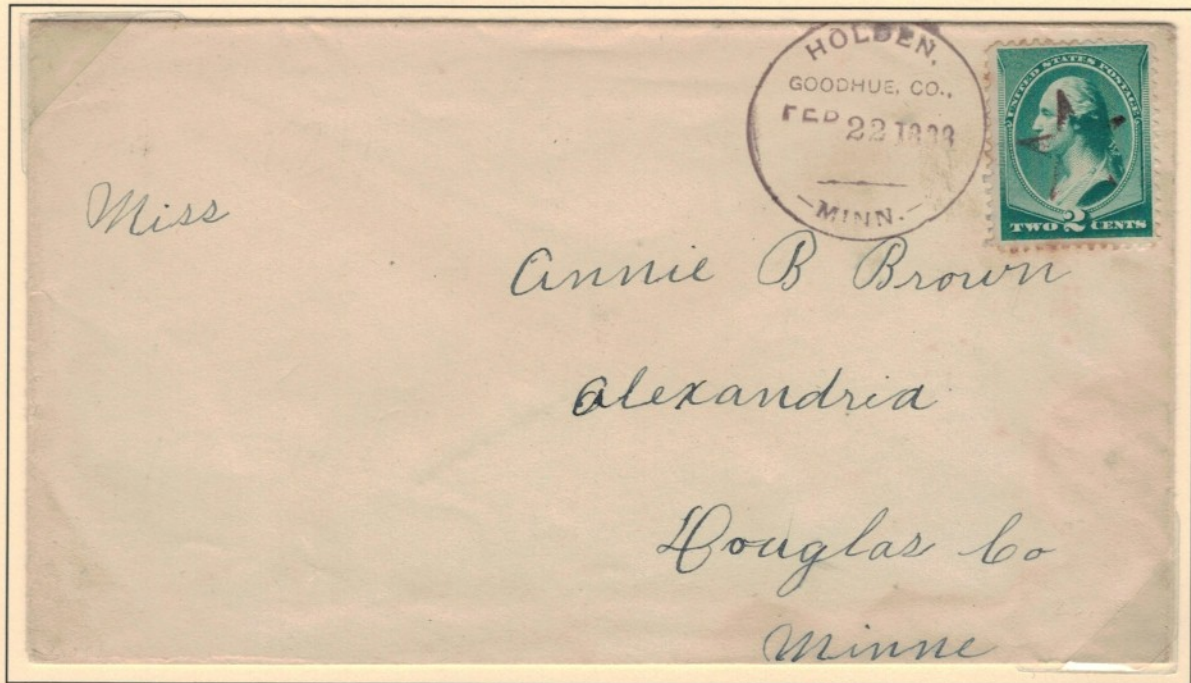 HOLDEN,
GOODHUE, CO.,
FEB 22 1888
—MINN.—
UNITED STATES POSTAGE
TWO 2 CENTS
Miss
Annie B Brown
Alexandria
Douglas Co
Minne